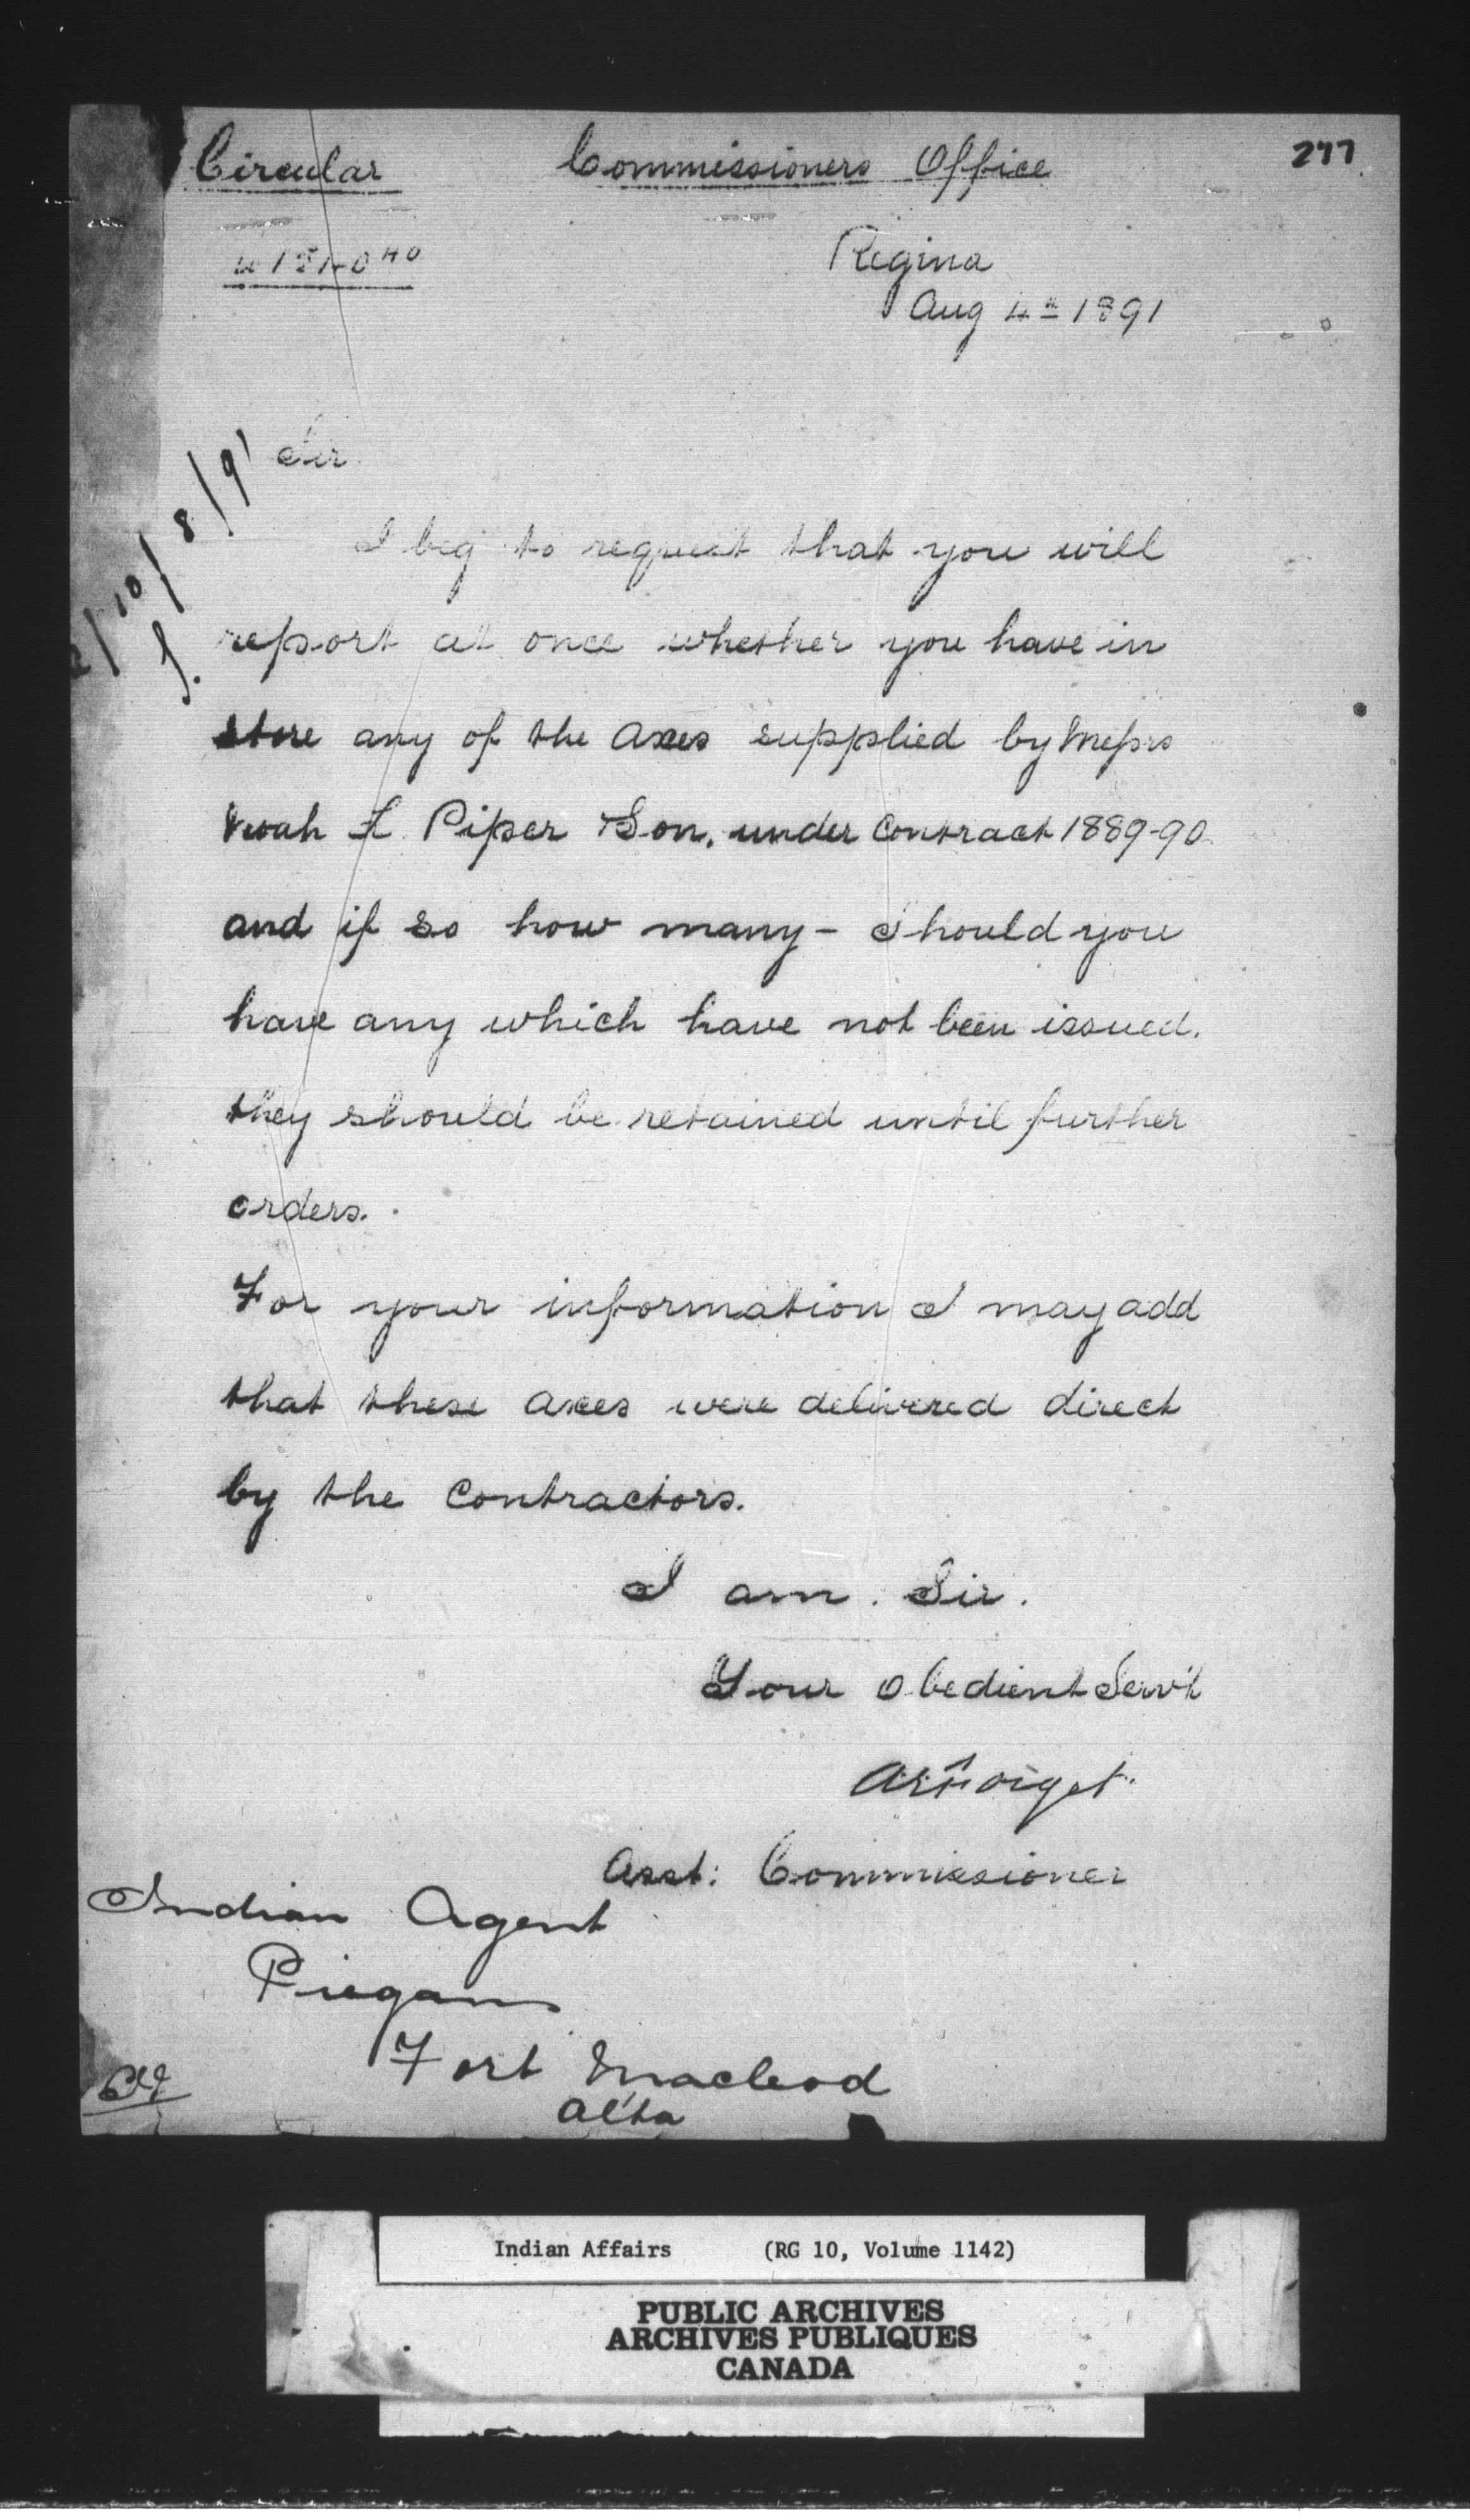 277
Circular Commissioners Office
Regina
Aug 4th 1891
Sir
I beg to request that you will
report at once whether you have in
store any of the Axes supplied by Messrs
Noah L Piper & Son, under Contract 1889-90
and if so how many - Should you
have any which have not been issued.
they should be retained until further
orders.
For your information I may add
that these axes were delivered direct
by the Contractors.
I am. Sir.
Your Obedient Serv't
AEForget
Asst: Commissioner
Indian Agent
Piegans
Fort Macleod
Alta
Indian Affairs (RG 10, Volume 1142)
PUBLIC ARCHIVES
ARCHIVES PUBLIQUES
CANADA